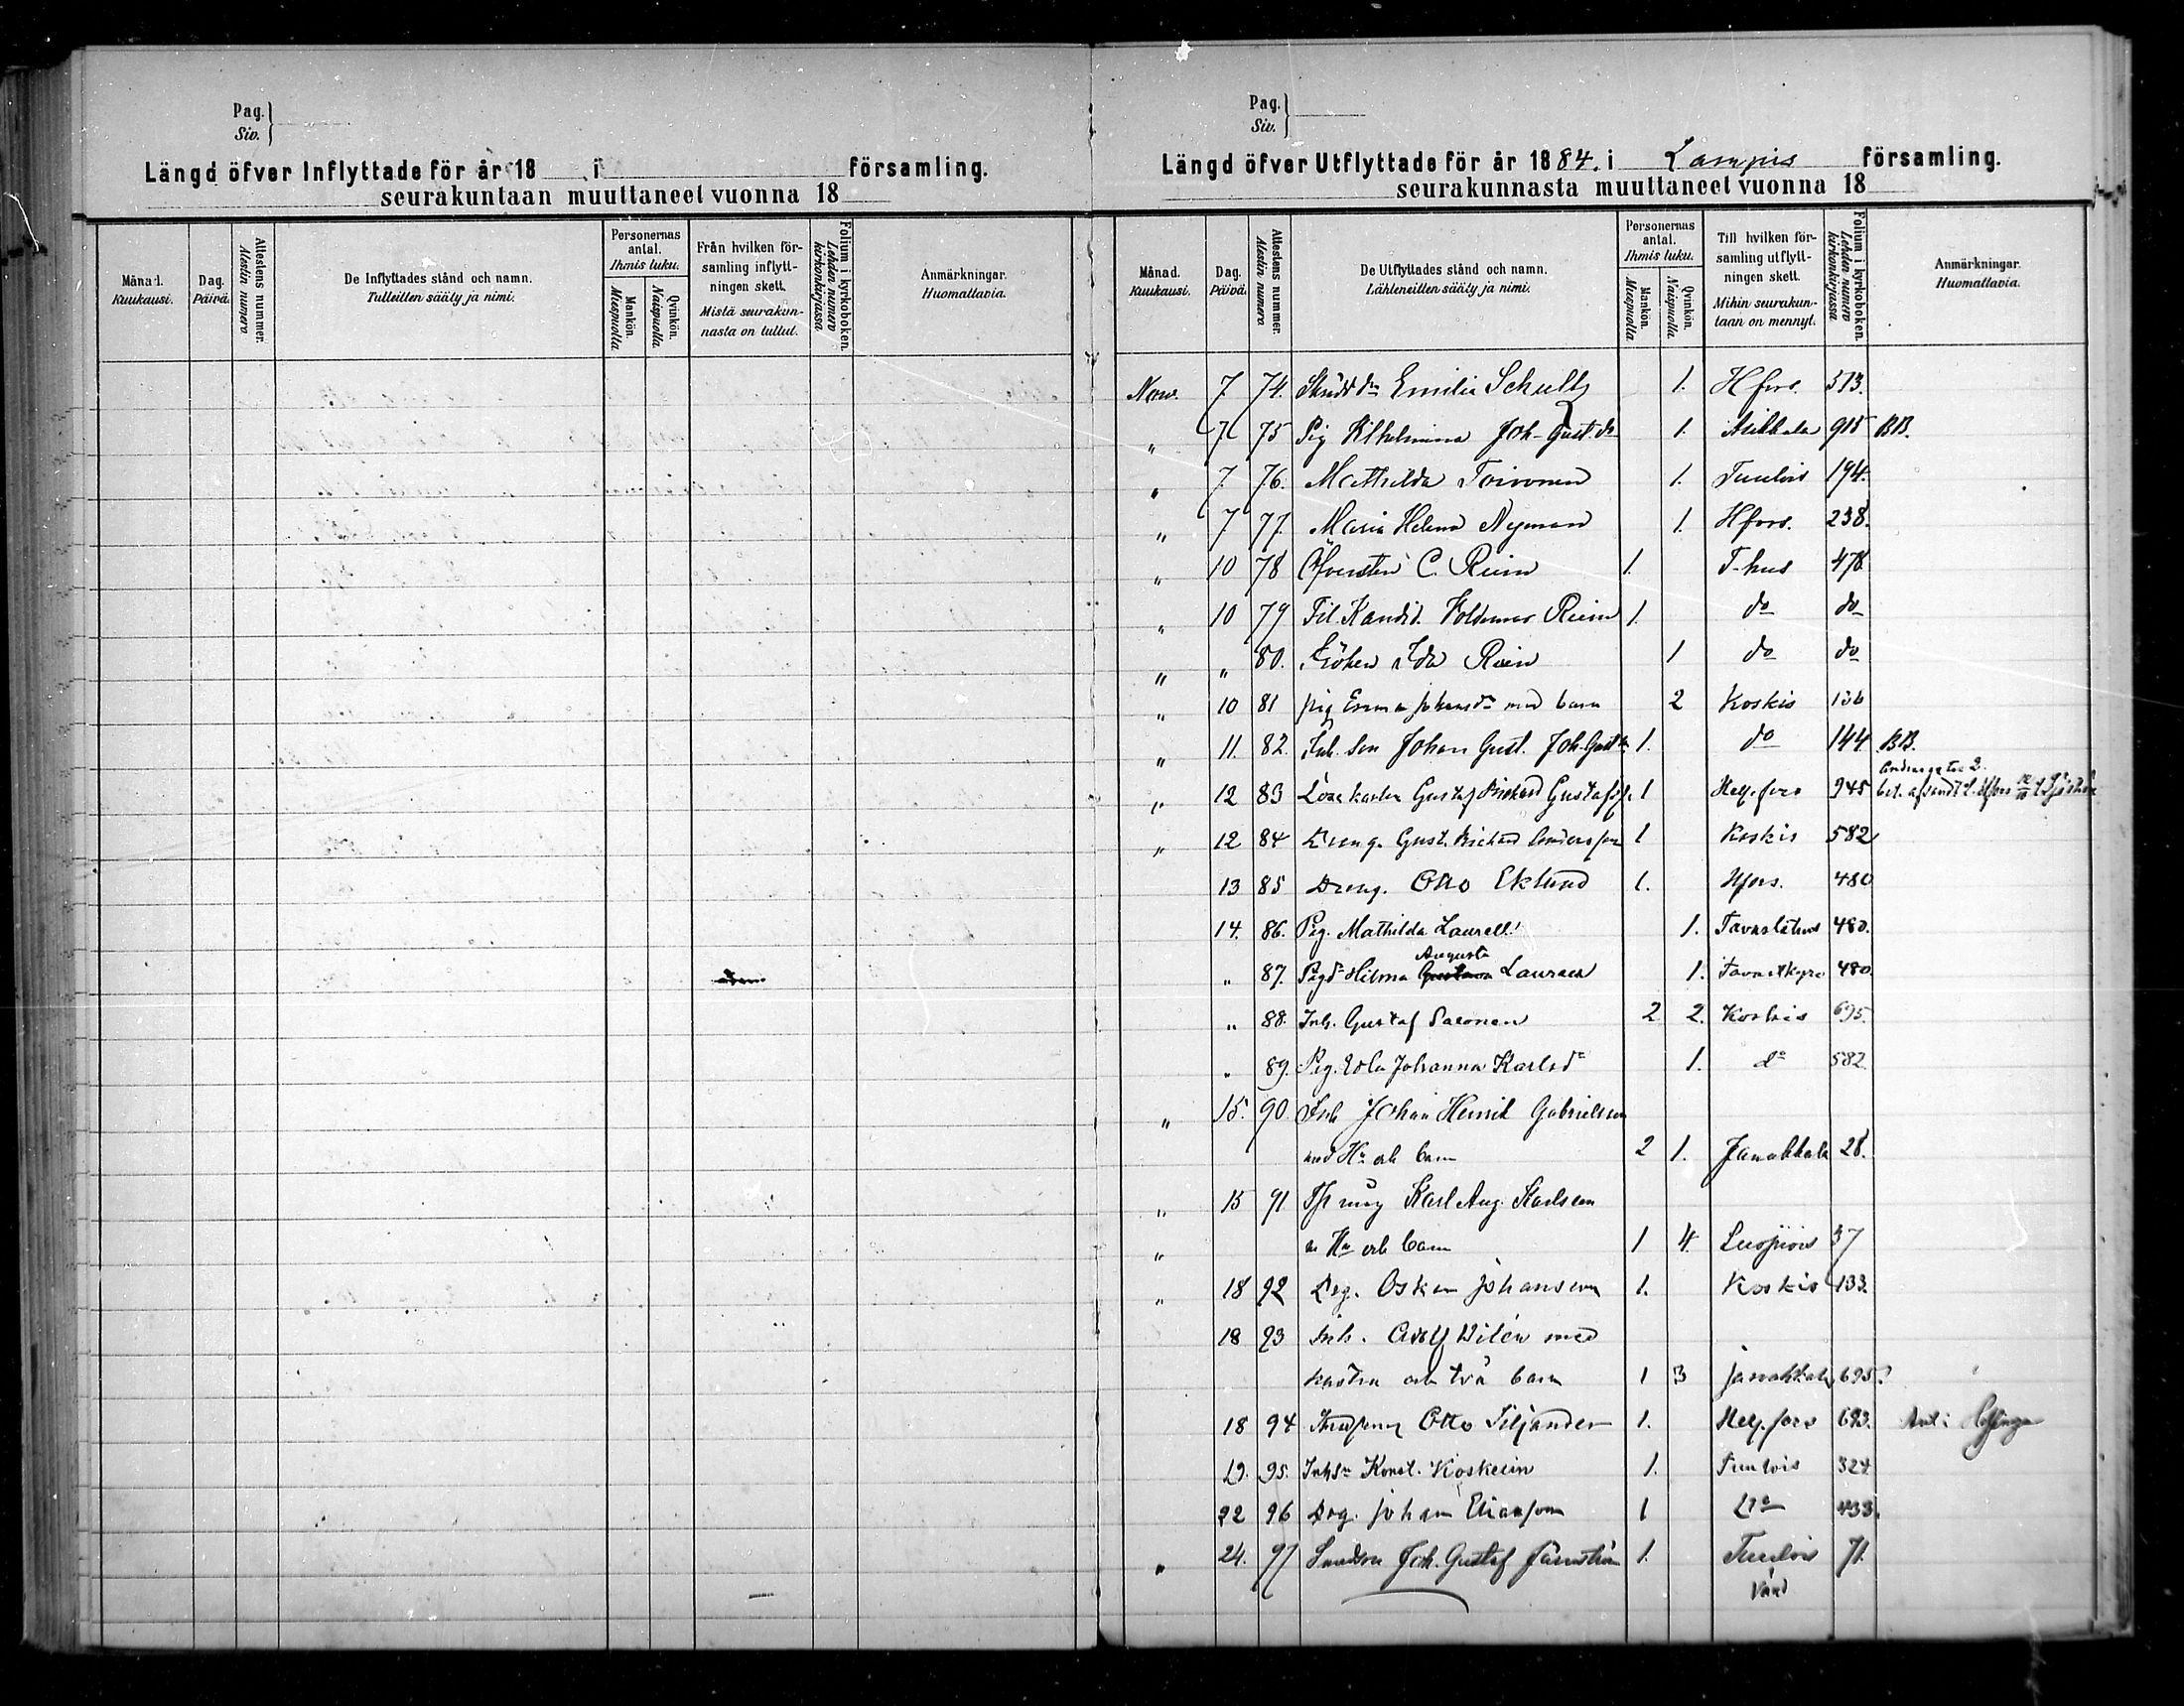 Pag.
Siv.
Längd öfver Inflyttade för år 18 i församling.
seurakuntaan muuttaneet vuonna 18
Månad. Kuukausi.
Dag. Päivä.
Attestens nummer. Atestin numero
De Inflyttades stånd och namn.
Tulleitten sääty ja nimi.
Personernas antal.
Ihmis luku.
Mankön. Miespuolia
Qvinkön. Naispuolia.
Från hvilken för-
samling inflytt-
ningen skett.
Mistä seurakun-
nasta on tullut.
Folium i kyrkoboken.
Lehden numero kirkonkirjassa
Anmärkningar.
Huomattavia.
Pag.
Siv.
Längd öfver Utflyttade för år 1884. i Lampis församling.
seurakunnasta muuttaneet vuonna 18
Månad. Kuukausi.
Dag. Päivä.
Attestens nummer. Atestin numero
De Utflyttades stånd och namn.
Lähteneitten sääty ja nimi.
Personernas antal.
Ihmis luku.
Mankön. Miespuolia
Qvinkön. Naispuolia.
Till hvilken för-
samling utflytt-
ningen skett.
Mihin seurakun-
taan on mennyt.
Folium i kyrkoboken.
Lehden numero kirkonkirjassa
Anmärkningar.
Huomattavia.
Nov. 7 74. Emilia Schultz 1. Hfors. 513.
" 7 75 Pig Vilhelmina Joh. Gustdr 1. Asikkala 915 BB.
" 7 76. Mathilda Toivonen 1. Tuulois 194.
" 7 77. Maria Helena Nyman 1. Hfors. 238.
" 10 78 Öfversten C. Rein 1. T-hus 478
" 10 79 Fil. Kandid. Voldemar Rein 1. do do
" " 80. Fröken Ida Rein 1 do do
" 10 81 pig Emma Johansdr med barn 2 Koskis 136
" 11. 82. Inh. son Johan Gust. Joh. Gust. 1. do 144 BB.
" 12 83 Gustaf Rickard Gustafss. 1 Helsfors 945
" 12 84 Dreng. Gust. Richard Andersson 1 Koskis 582
13 85 Dreng. Otto Eklund 1. Hfors. 480
14. 86. Pig. Mathilda Laurell 1. Tavastehus 480.
Augusta
" 87. Pigd Hilma Gustava Lauraea 1. Tavastkyro 480
" 88. Inh. Gustaf Salonen 2 2. Koskis 695.
" 89. Pig. Edla Johanna Karlsdr 1. do 582.
" 15. 90 Inh Johan Henrik Gabrielsson
med Hu och barn 2 1. Janakkala 28.
" 15 91 Karl Aug. Karlsson
" m Hu och barn 1 4. Luopiois 37
" 18 92 Drg. Oskar Johansson 1. Koskis 133.
18 93 Inh. Adolf Vilén med
hustru och två barn 1 3 Janakkala 695?
18 94 Otto Siljander 1. Helsfors 693.
19. 95. Inhsn Konst. Koskelin 1. Tuulois 324
22 96 Drg. Johan Eliasson 1 Do 433.
" 24. 97 Joh. Gustaf 1. Tuulois 71.